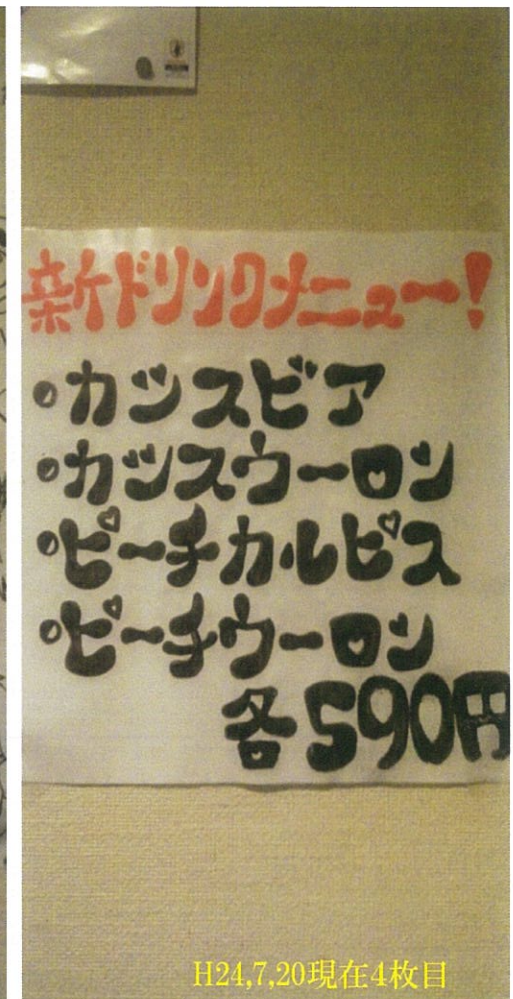 新ドリンクメニュー!
・カシスビア
・カシスウーロン
・ピーチカルピス
・ピーチウーロン
各590円
H24,7,20現在4枚目